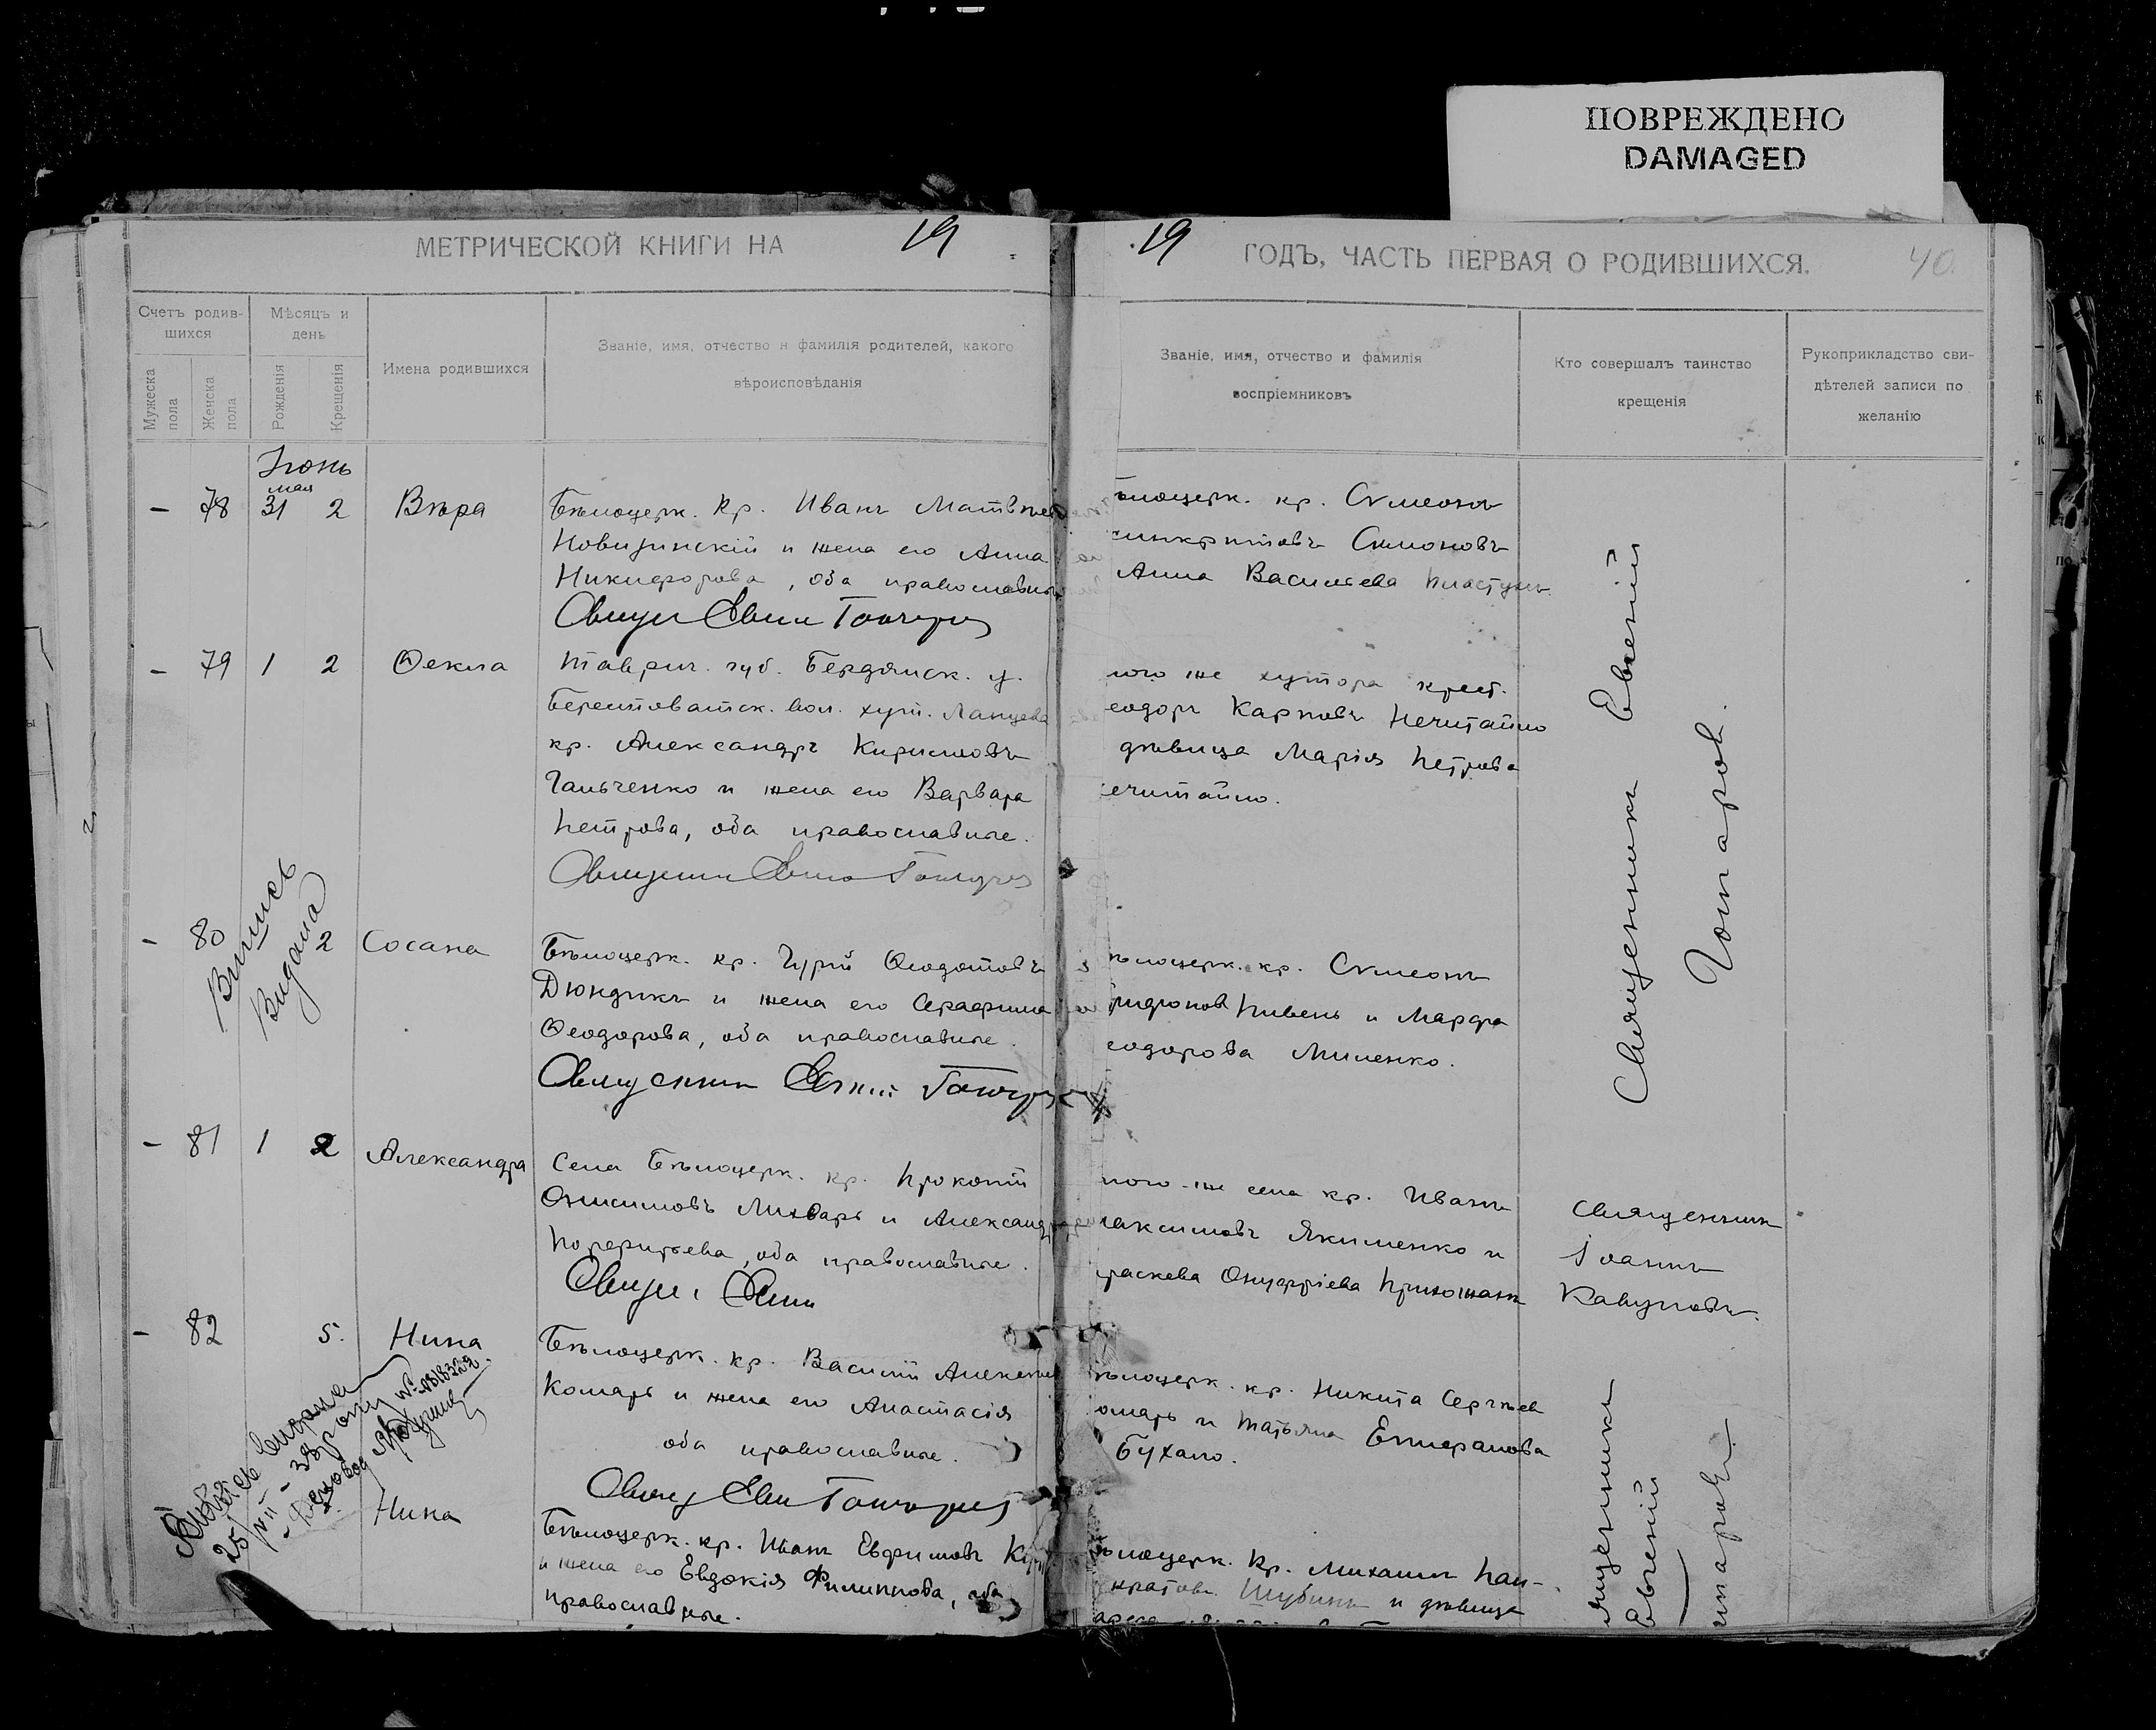 ПОВРЕЖДЕНО
DAMAGED
МЕТРИЧЕСКОЙ КНИГИ НА 19
19 ГОДЪ, ЧАСТЬ ПЕРВАЯ О РОДИВШИХСЯ.
40.
Счетъ родив-
шихся
Мужеска
пола
Женска
пола
Мѣсяцъ и
день
Рожденія
Крещенія
Имена родившихся
Званіе, имя, отчество и фамилія родителей, какого
вѣроисповѣданія
Званіе, имя, отчество и фамилія
воспріемниковъ
Кто совершалъ таинство
крещенія
Рукоприкладство сви-
дѣтелей записи по
желанію
Іюнь
мая
– 78 31 2 Вѣра
Бѣлоцерк. кр. Иванъ Матвѣев
и жена его Анна
Никифорова, оба православные
ѣлоцерк. кр. Сѵмеонъ
Симоновъ
Анна Васильева Пластунъ
– 79 1 2 Ѳекла
Таврич. губ. Бердянск. у.
Берестоватск. вол. хут. Ланцева
кр. Александръ Кирилловъ
Гальченко и жена его Варвара
Петрова, оба православные.
того же хутора крест.
еодоръ Карповъ Нечитайло
дѣвица Марія Петрова
ечитайло.
Священникъ Евгеній
Гончаровъ.
– 80 2 Сосана
Випись
Видана
Бѣлоцерк. кр. Гурій Ѳеодотовъ
Дюндикъ и жена его Серафима
Ѳеодорова, оба православные.
ѣлоцерк. кр. Сѵмеонъ
ридонов Пивень и Марфа
еодорова Миленко.
– 81 1 2 Александра
Села Бѣлоцерк. кр. Прокопій
Онисимовъ Лихварь и Александра
Порфирьева, оба православные.
того-же села кр. Иванъ
аксимовъ Якименко и
раскева Онуфріева Прихожан
Священникъ
Іоаннъ
– 82 5. Нина
Бѣлоцерк. кр. Василій Алексеев
Комарь и жена его Анастасія
оба православные.
ѣлоцерк. кр. Никита Сергѣев
омарь и Татьяна Епифанова
Бухало.
Нина
Бѣлоцерк. кр. Иванъ Евфимовъ
и жена его Евдокія Филиппова, оба
православные.
ѣлоцерк. кр. Михаилъ Пан-
кратовъ Шубинъ и дѣвица
ященникъ
Евгеній
нчаровъ